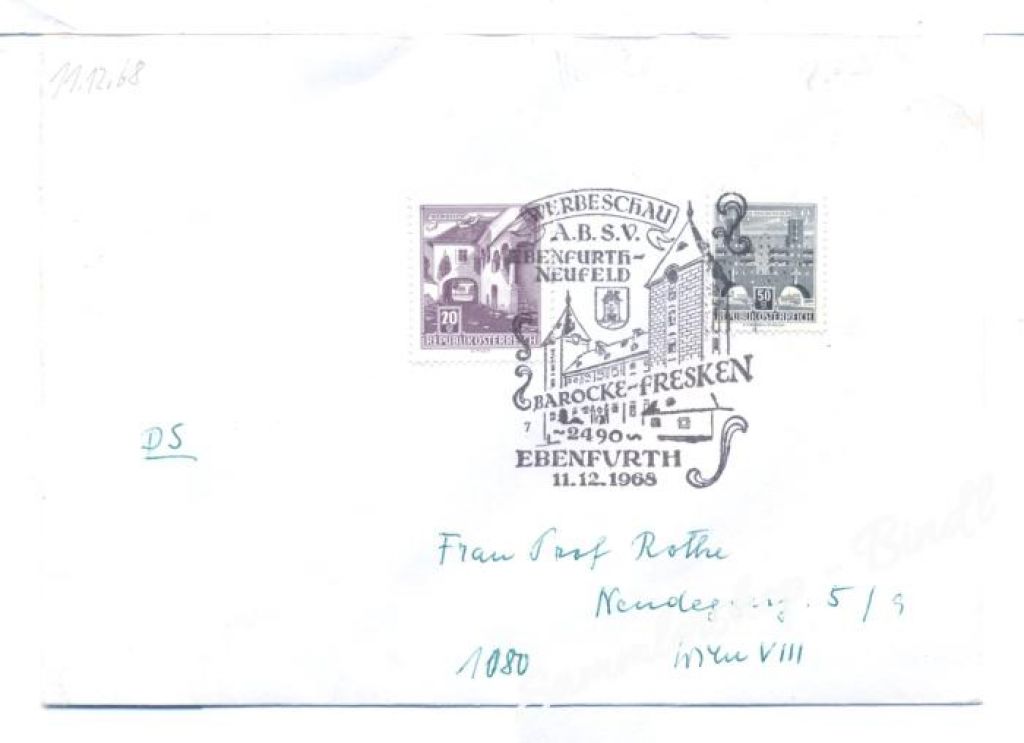 11.12.68
WERBESCHAU
A.B.S.V.
EBENFURTH-
NEUFELD
20
REPUBLIK ÖSTERREICH
50
REPUBLIK ÖSTERREICH
BAROCKE-FRESKEN
7
~2490~
EBENFURTH
11.12.1968
DS
Frau Prof Rothe
5/9
1080 Wien VIII
Sammlershop - Bindl